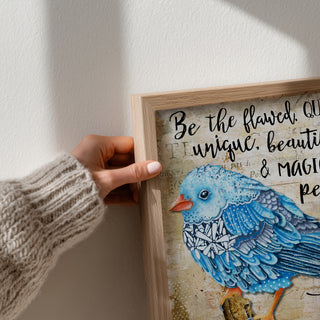 Be the flawed, QU
unique, beauti
& MAGI
pe